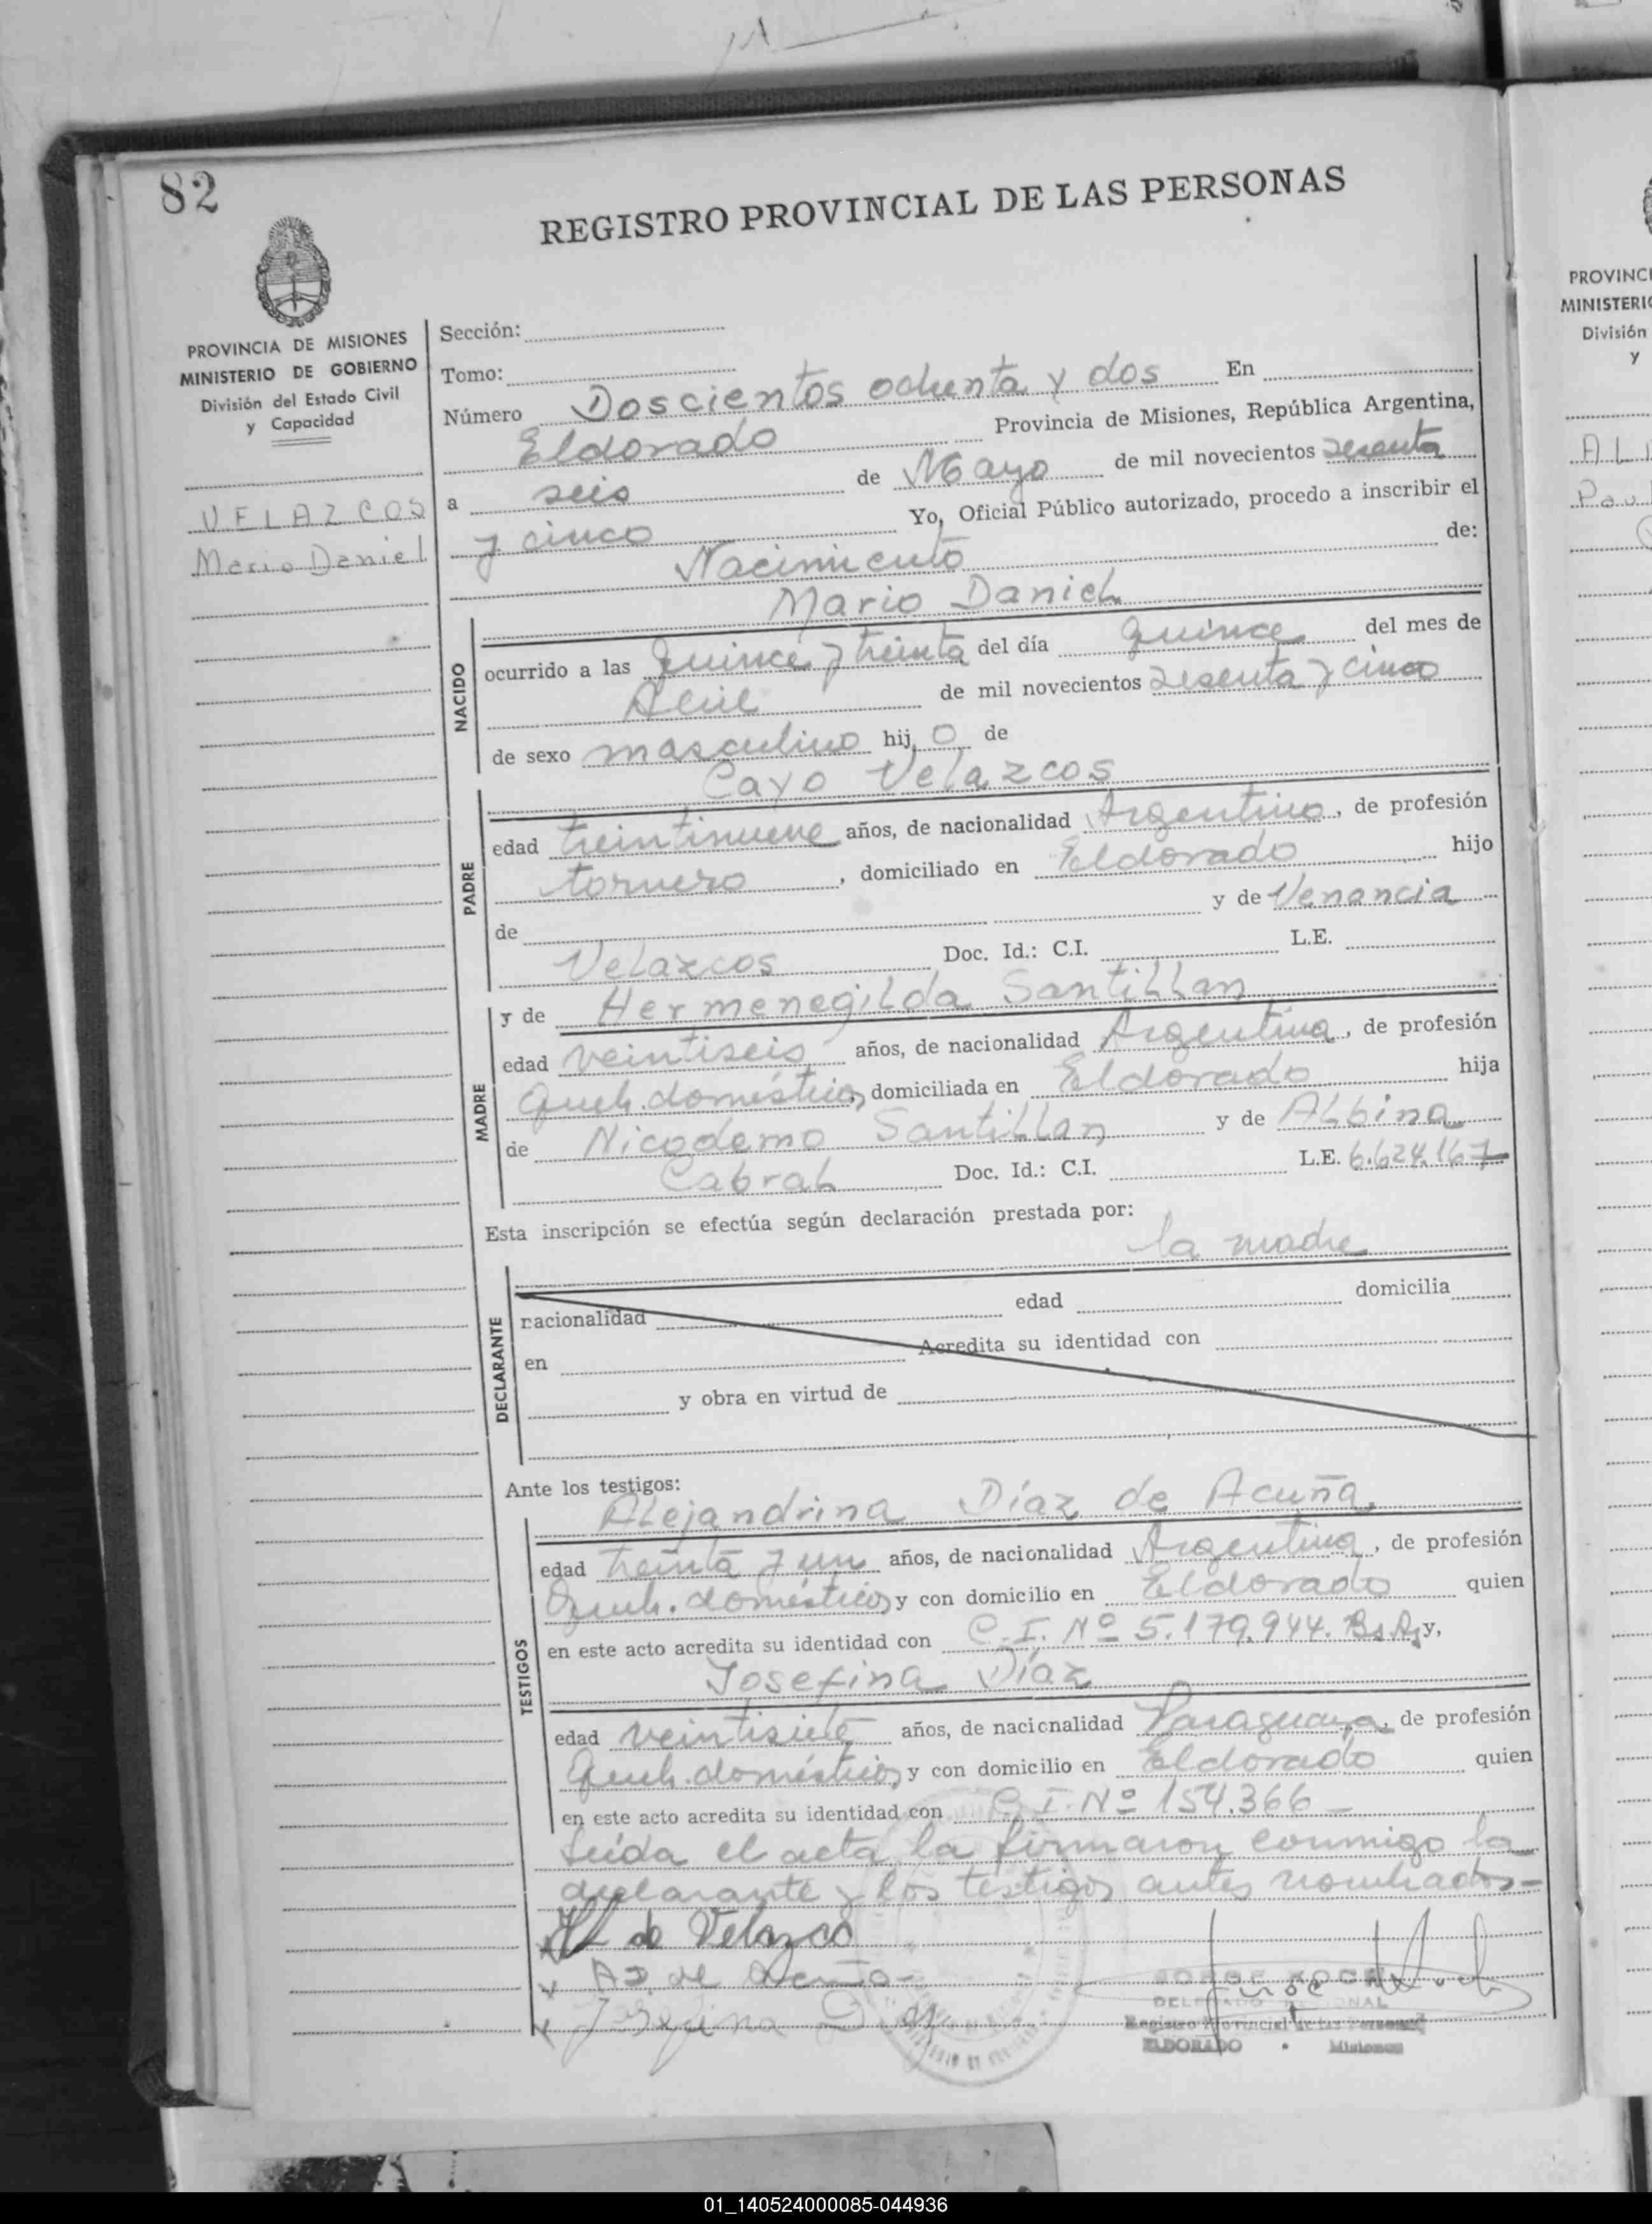 82
REGISTRO PROVINCIAL DE LAS PERSONAS
PROVINCIA DE MISIONES
MINISTERIO DE GOBIERNO
División del Estado Civil
y Capacidad
VELAZCOS
Mario Daniel
Sección:
Tomo:
Número Doscientos ochenta y dos En
Eldorado Provincia de Misiones, República Argentina,
a seis de Mayo de mil novecientos sesenta
y cinco Yo, Oficial Público autorizado, procedo a inscribir el
Nacimiento de:
Mario Daniel
NACIDO
ocurrido a las quince y treinta del día quince del mes de
Abril de mil novecientos sesenta y cinco
de sexo masculino hij o de
Cayo Velazcos
PADRE
edad treintinueve años, de nacionalidad Argentino, de profesión
tornero, domiciliado en Eldorado hijo
de y de Venancia
Velazcos Doc. Id.: C.I. L.E.
y de Hermenegilda Santillan
MADRE
edad veintiseis años, de nacionalidad Argentina, de profesión
Queh. domésticos, domiciliada en Eldorado hija
de Nicodemo Santillan y de Albina
Cabral Doc. Id.: C.I. L.E. 6.624.167
Esta inscripción se efectúa según declaración prestada por:
la madre
DECLARANTE
nacionalidad edad domicilia
en Acredita su identidad con
y obra en virtud de
Ante los testigos:
Alejandrina Díaz de Acuña
TESTIGOS
edad treinta y un años, de nacionalidad Argentina, de profesión
Queh. domésticos y con domicilio en Eldorado quien
en este acto acredita su identidad con C.I. Nº 5.179.944. Bs.As y,
Josefina Díaz
edad veintisiete años, de nacionalidad Paraguaya, de profesión
Queh. domésticos y con domicilio en Eldorado quien
en este acto acredita su identidad con C.I. Nº 154.366
Leída el acta, la firmaron conmigo la
declarante y los testigos antes nombrados.-
H de Velazco
x AD. de Acuña
x Josefina Diaz
JORGE KOCH
DELEGADO REGIONAL
Registro Provincial de las Personas
ELDORADO • Misiones
PROVINCI
MINISTERIO
División
y
01_140524000085-044936